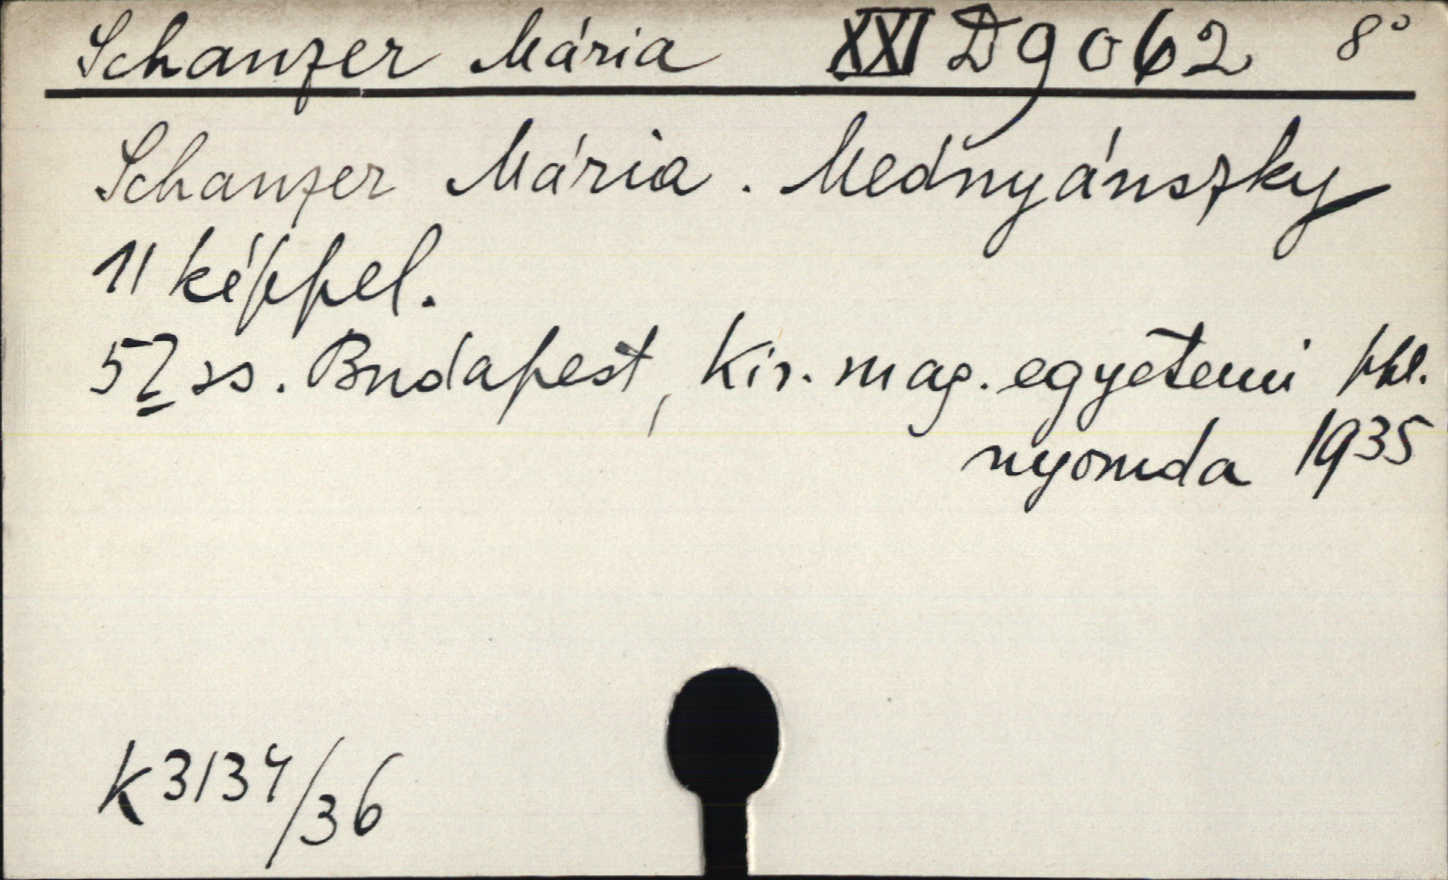 Schanzer Mária XXI D 9062 8°
Schanzer Mária. Mednyánszky
11 képpel.
52 ss. Budapest, Kir. mag. egyetemi
nyomda 1935
K 3134/36